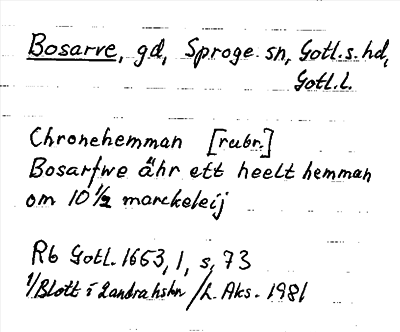 Bosarve, gd, Sproge sn, Gotl. s. hd,
Gotl. l.
Chronehemman [rubr.]
Bosarfwe ähr ett heelt hemman
om 10 1/2 marckeleij
Rb Gotl. 1653, 1, s, 73
1/Blott i Landrahshn /L. Aks. 1981